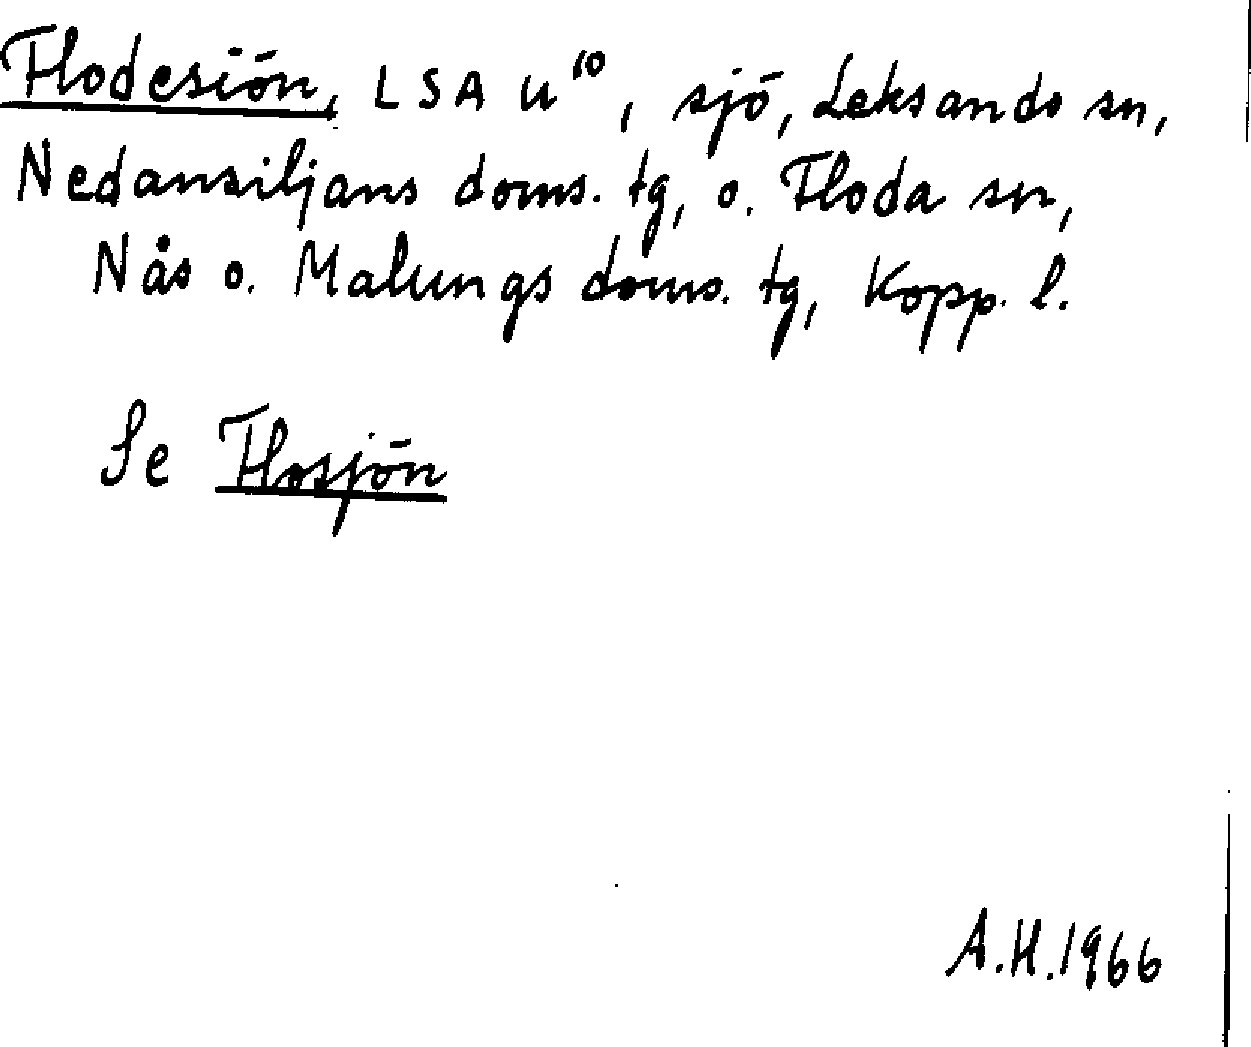 Flodesiön, LSA U¹⁰, sjö, Leksands sn,
Nedansiljans doms. tg, o. Floda sn,
Nås o. Malungs doms. tg, Kopp. l.
Se Flosjön
A.H.1966